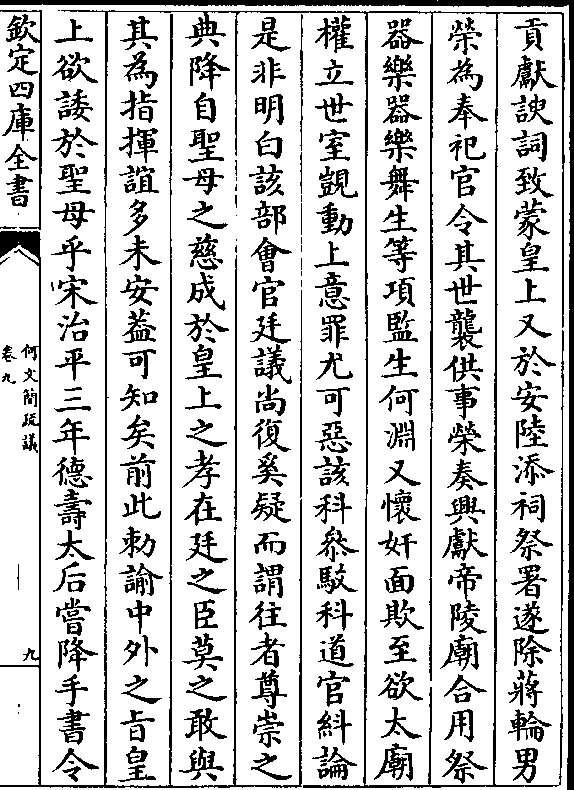 貢獻諛詞致蒙皇上又於安陸添祠祭署遂除蔣輪男
榮為奉祀官令其世襲供事榮奏興獻帝陵廟合用祭
器樂器樂舞生等項監生何淵又懷奸面欺至欲太廟
權立世室覬動上意罪尤可惡該科叅駁科道官糾論
是非明白該部會官廷議尚復奚疑而謂往者尊崇之
典降自聖母之慈成於皇上之孝在廷之臣莫之敢與
其為指揮誼多未安葢可知矣前此勅諭中外之旨皇
上欲諉於聖母乎宋治平三年德壽太后嘗降手書令
欽定四庫全書
何文簡疏議
卷九
九